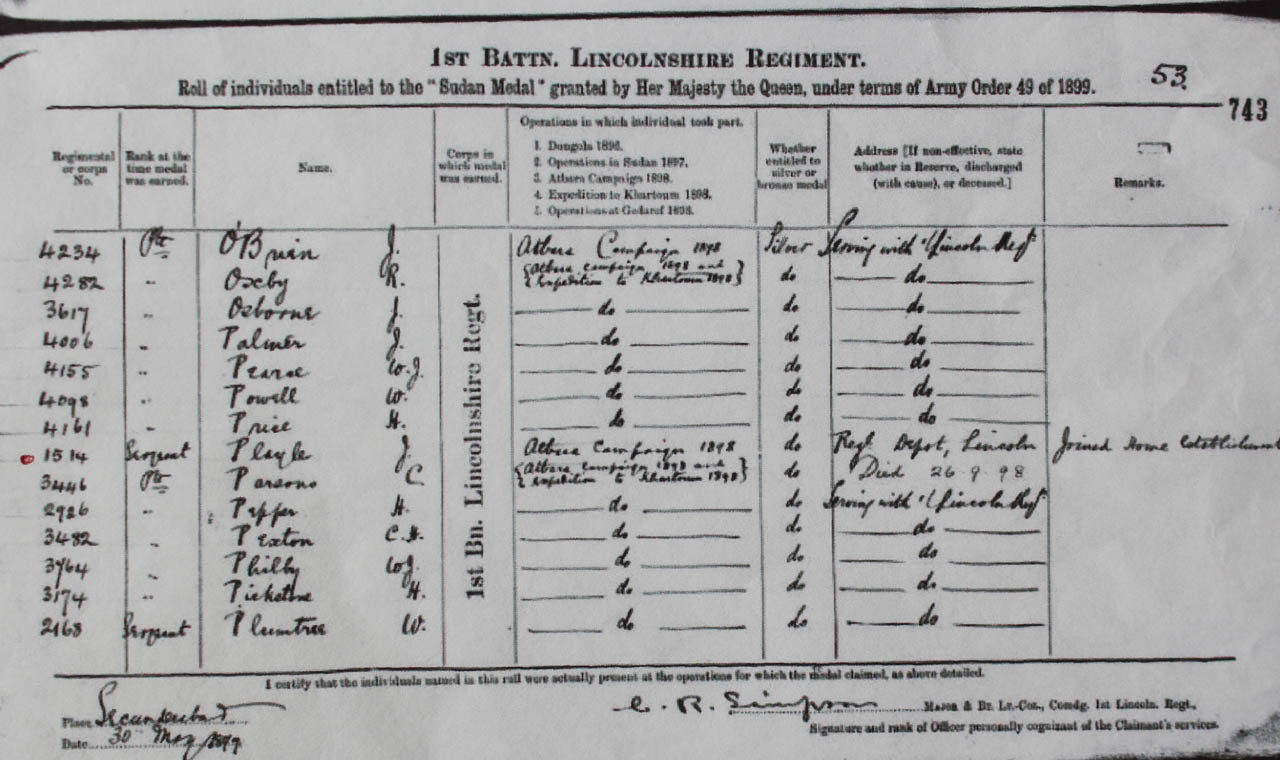 1ST BATTN. LINCOLNSHIRE REGIMENT.
Roll of individuals entitled to the "Sudan Medal" granted by Her Majesty the Queen, under terms of Army Order 49 of 1899.
53.
743
Regimental or corps No.
Rank at the time medal was earned.
Name.
Corps in which medal was earned.
Operations in which individual took part.
1. Dongola 1896.
2. Operations in Sudan 1897.
3. Atbara Campaign 1898.
4. Expedition to Khartoum 1898.
5. Operations at Gedaref 1898.
Whether entitled to silver or bronze medal
Address [If non-effective, state whether in Reserve, discharged (with cause), or deceased.]
Remarks.
1st Bn. Lincolnshire Regt.
4234 Pte O'Brien J. Atbara Campaign 1898 Silver Serving with 1/Lincoln Regt
4282 " Oxeby R. {Atbara Campaign 1898 and Expedition to Khartoum 1898} do do
3617 " Osborne J. do do do
4006 " Palmer J. do do do
4155 " Pearce W.J. do do do
4098 " Powell W. do do do
4161 " Price H. do do do
1514 Sergeant Playle J. Atbara Campaign 1898 do Regl Depot, Lincoln Joined Home Establishment
3446 Pte Parsons C. {Atbara Campaign 1898 and Expedition to Khartoum 1898} do Died 26.9.98
2926 " Pepper H. do do Serving with 1/Lincoln Regt
3482 " Pexton C.H. do do do
3764 " Philby W.J. do do do
3174 " H. do do do
2168 Sergeant Plumtree W. do do do
I certify that the individuals named in this roll were actually present at the operations for which the medal claimed, as above detailed.
Place Secunderabad
Date 30 May 1899
C. R. Simpson MAJOR & BT. LT.-COL., Comdg. 1st Lincoln. Regt.,
Signature and rank of Officer personally cognizant of the Claimant's services.